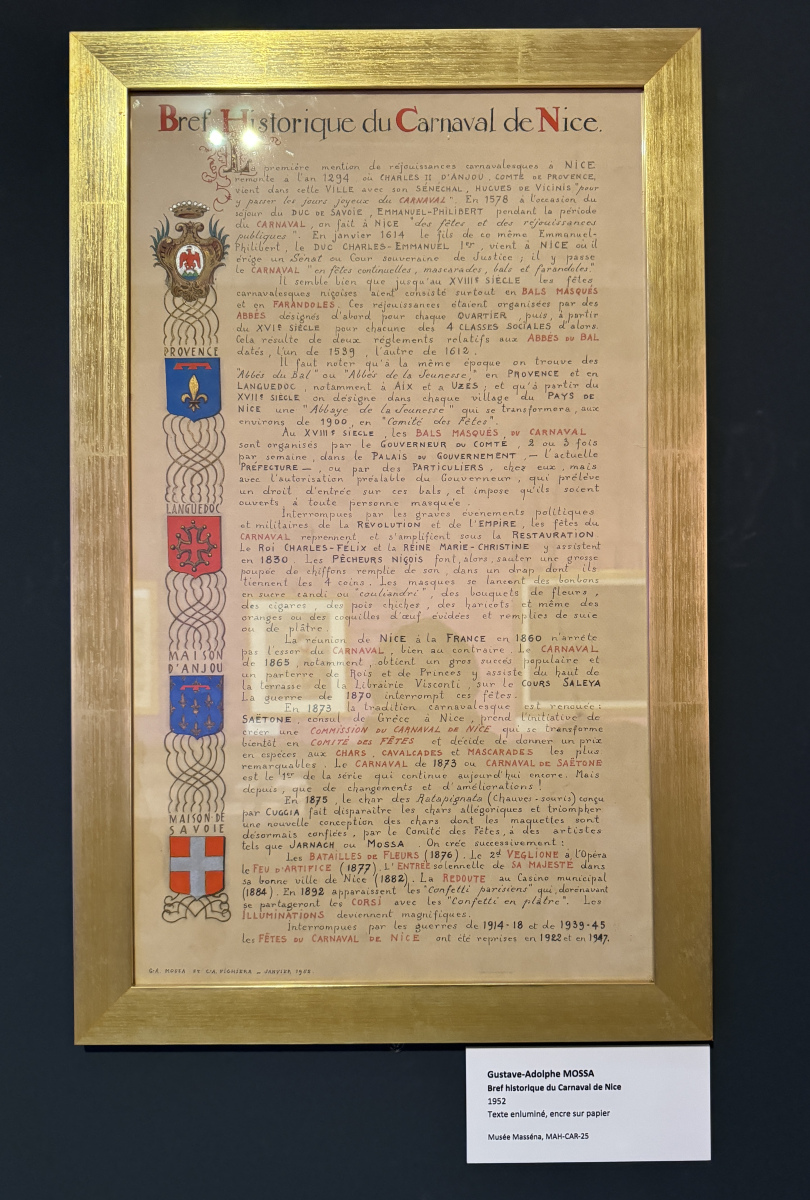 Bref Historique du Carnaval de Nice.
La première mention de réjouissances carnavalesques à NICE
remonte à l'an 1294 où CHARLES II D'ANJOU, COMTE DE PROVENCE,
vient dans cette VILLE avec son SÉNÉCHAL, HUGUES DE VICINIS "pour
y passer les jours joyeux du CARNAVAL". En 1578 à l'occasion du
séjour du DUC DE SAVOIE, EMMANUEL-PHILIBERT pendant la période
du CARNAVAL, on fait à NICE "des fêtes et des réjouissances
publiques". En janvier 1614 le fils de ce même Emmanuel-
Philibert, le DUC CHARLES-EMMANUEL 1er, vient à NICE où il
érige un Sénat ou Cour souveraine de Justice; il y passe
le CARNAVAL "en fêtes continuelles, mascarades, bals et farandoles."
Il semble bien que jusqu'au XVIIIe SIÈCLE les fêtes
carnavalesques niçoises aient consisté surtout en BALS MASQUÉS
et en FARANDOLES. Ces réjouissances étaient organisées par des
ABBÉS désignés d'abord pour chaque QUARTIER, puis, à partir
du XVIe SIÈCLE pour chacune des 4 CLASSES SOCIALES d'alors.
Cela résulte de deux réglements relatifs aux ABBÉS DU BAL
datés, l'un de 1539, l'autre de 1612.
Il faut noter qu'à la même époque on trouve des
"Abbés du Bal" ou "Abbés de la Jeunesse", en PROVENCE et en
LANGUEDOC, notamment à AIX et à UZÈS; et qu'à partir du
XVIIe SIÈCLE on désigne dans chaque village du PAYS DE
NICE une "Abbaye de la Jeunesse" qui se transformera, aux
environs de 1900, en "Comité des Fêtes".
Au XVIIIe SIÈCLE, les BALS MASQUÉS, DU CARNAVAL
sont organisés par le GOUVERNEUR DU COMTÉ, 2 ou 3 fois
par semaine, dans le PALAIS DU GOUVERNEMENT, – l'actuelle
PRÉFECTURE –, ou par des PARTICULIERS, chez eux, mais
avec l'autorisation préalable du Gouverneur, qui prélève
un droit d'entrée sur ces bals, et impose qu'ils soient
ouverts à toute personne masquée.
Interrompues par les graves événements politiques
et militaires de la RÉVOLUTION et de l'EMPIRE, les fêtes du
CARNAVAL reprennent et s'amplifient sous la RESTAURATION.
Le ROI CHARLES-FÉLIX et la REINE MARIE-CHRISTINE y assistent
en 1830. Les PÊCHEURS NIÇOIS font, alors, sauter une grosse
poupée de chiffons remplie de son, dans un drap dont ils
tiennent les 4 coins. Les masques se lancent des bonbons
en sucre candi ou "couliandri", des bouquets de fleurs,
des cigares, des pois chiches, des haricots et même des
oranges ou des coquilles d'œuf évidées et remplies de suie
ou de plâtre.
La réunion de NICE à la FRANCE en 1860 n'arrête
pas l'essor du CARNAVAL, bien au contraire. Le CARNAVAL
de 1865, notamment, obtient un gros succès populaire et
un parterre de Rois et de Princes y assiste du haut de
la terrasse de la Librairie Visconti, sur le COURS SALEYA
La guerre de 1870 interrompt ces fêtes.
En 1873 la tradition carnavalesque est renouée:
SAËTONE, consul de Grèce à Nice, prend l'initiative de
créer une COMMISSION DU CARNAVAL DE NICE qui se transforme
bientôt en COMITÉ DES FÊTES et décide de donner un prix
en espèces aux CHARS, CAVALCADES et MASCARADES les plus
remarquables. Le CARNAVAL DE 1873 ou CARNAVAL DE SAËTONE
est le 1er de la série qui continue aujourd'hui encore. Mais
depuis, que de changements et d'améliorations!
En 1875, le char des Ratapignata (Chauves-souris) conçu
par CUGGIA fait disparaître les chars allégoriques et triompher
une nouvelle conception des chars dont les maquettes sont
désormais confiées, par le Comité des Fêtes, à des artistes
tels que JARNACH ou MOSSA. On crée successivement:
Les BATAILLES DE FLEURS (1876). Le 2d VEGLIONE à l'Opéra
le FEU D'ARTIFICE (1877). L'ENTRÉE solennelle de SA MAJESTÉ dans
sa bonne ville de Nice (1882). La REDOUTE au Casino municipal
(1884). En 1892 apparaissent les "Confetti parisiens" qui, dorénavant
se partageront les CORSI avec les "Confetti en plâtre". Les
ILLUMINATIONS deviennent magnifiques.
Interrompues par les guerres de 1914-18 et de 1939-45
les FÊTES DU CARNAVAL DE NICE ont été reprises en 1922 et en 1947.
PROVENCE
LANGUEDOC
MAISON
D'ANJOU
MAISON DE
SAVOIE
G.A. MOSSA ET JANVIER
Gustave-Adolphe MOSSA
Bref historique du Carnaval de Nice
1952
Texte enluminé, encre sur papier
Musée Masséna, MAH-CAR-25